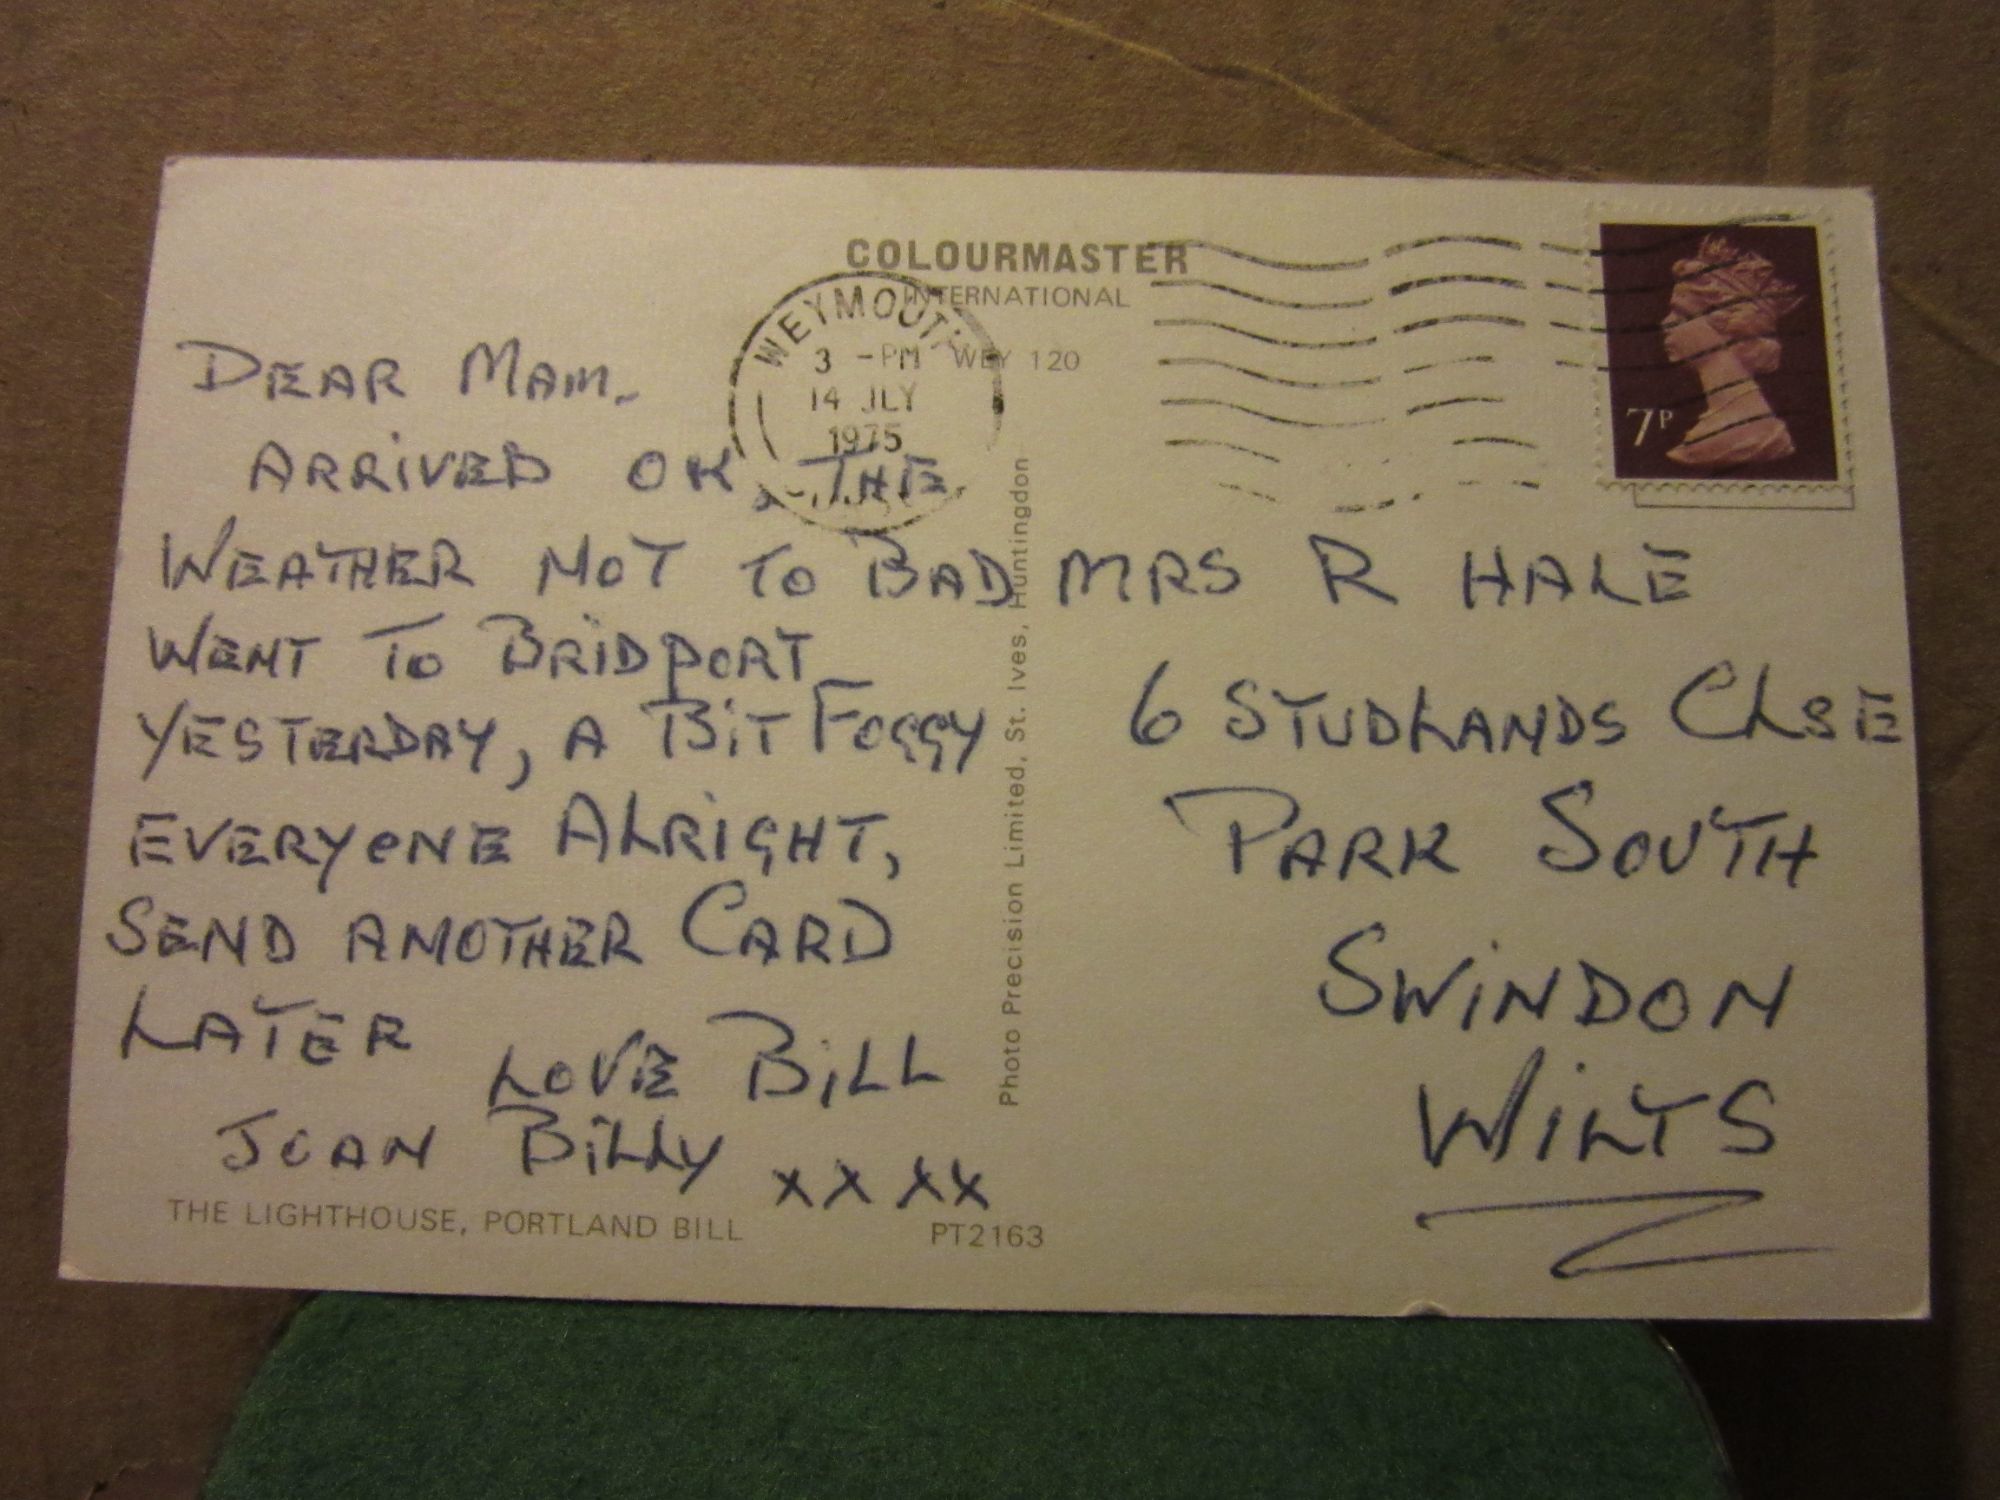 COLOURMASTER
INTERNATIONAL
WEYMOUTH
3 -PM WEY 120
14 JLY
1975
7P
DEAR MAM.
ARRIVED OK. THE
WEATHER NOT TO BAD
WENT TO BRIDPORT
YESTERDAY, A BIT FOGGY
EVERYONE ALRIGHT,
SEND ANOTHER CARD
LATER
LOVE BILL
JOAN BILLY XX XX
THE LIGHTHOUSE, PORTLAND BILL PT2163
Photo Precision Limited, St. Ives, Huntingdon
MRS R HALE
6 STUDLANDS CLSE
PARK SOUTH
SWINDON
WILTS